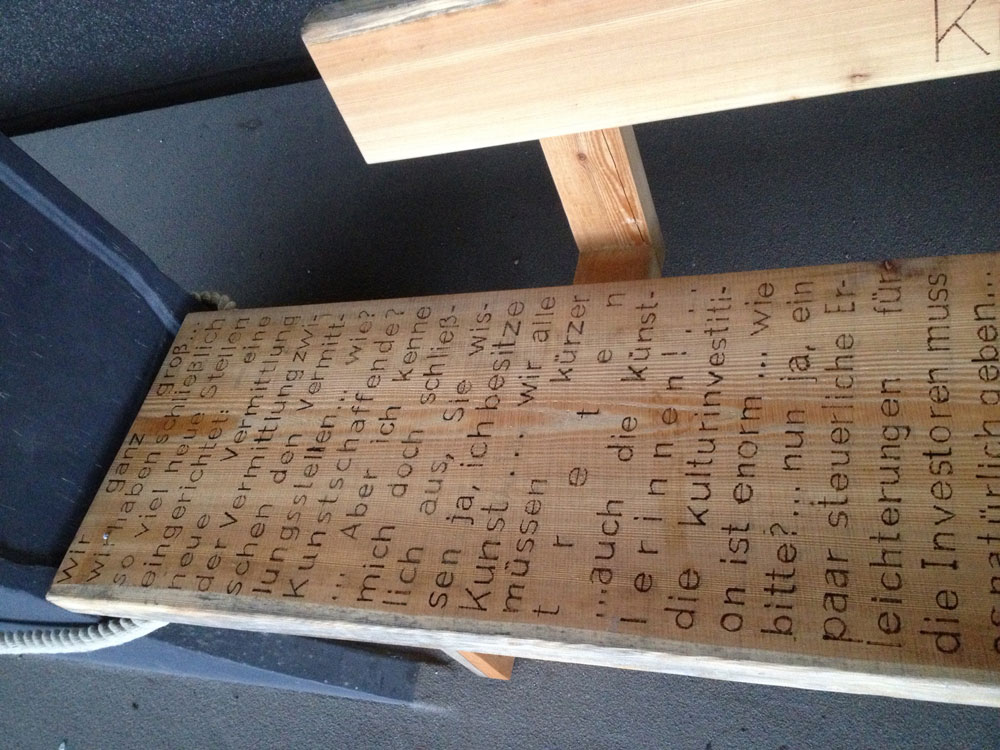 wir ganz groß...
wir haben schließlich
so viel neue Stellen
eingerichtet: eine
neue Vermittlung
der Vermittlung zwi-
schen den Vermitt-
lungsstellen... wie?
Kunstschaffende?
... Aber ich kenne
mich doch schließ-
lich aus, Sie wis-
sen ja, ich besitze
Kunst ... wir alle
müssen kürzer
t r e t e n
...auch die künst-
l e r i n n e n ! ...
die kulturinvestiti-
on ist enorm ... wie
bitte? ... nun ja, ein
paar steuerliche Er-
leichterungen für
die Investoren muss
es natürlich geben...
K